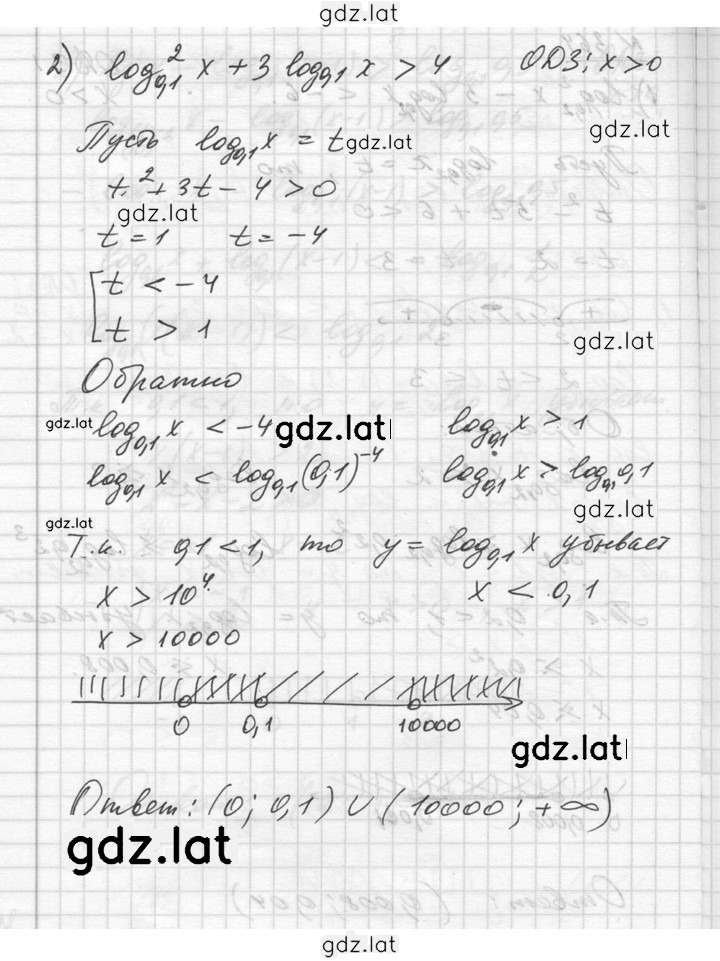 gdz.lat
2) log²₀,₁ x + 3 log₀,₁ x > 4 ОДЗ: x > 0
gdz.lat
Пусть log₀,₁ x = t gdz.lat
t² + 3t - 4 > 0
gdz.lat
t = 1 t = -4
[ t < -4
[ t > 1
gdz.lat
Обратно
gdz.lat log₀,₁ x < -4 gdz.lat log₀,₁ x > 1
log₀,₁ x < log₀,₁ (0,1)⁻⁴ log₀,₁ x > log₀,₁ 0,1
gdz.lat gdz.lat
Т.к. 0,1 < 1, то y = log₀,₁ x убывает
x > 10⁴ x < 0,1
x > 10000
0 0,1 10000
gdz.lat
Ответ: (0; 0,1) ∪ (10000; +∞)
gdz.lat
gdz.lat